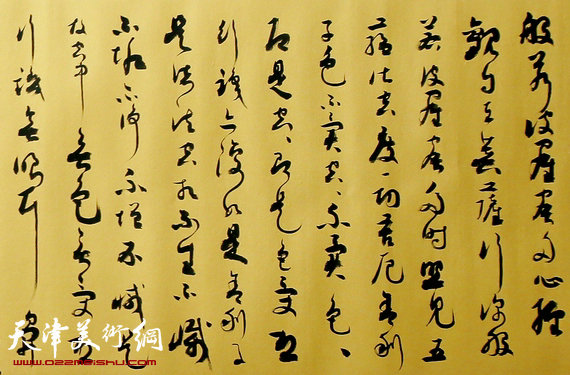 般若波羅蜜多心經
觀自在菩薩行深般
若波羅蜜多時照見五
蘊皆空度一切苦厄舍利
子色不異空、不異色、
即是空、即是色受想
行識亦復如是舍利子
是諸法空相不生不滅
不垢不淨不增不減是
故空中無色無受想
行識無眼耳鼻
天津美術網
www.022meishu.com